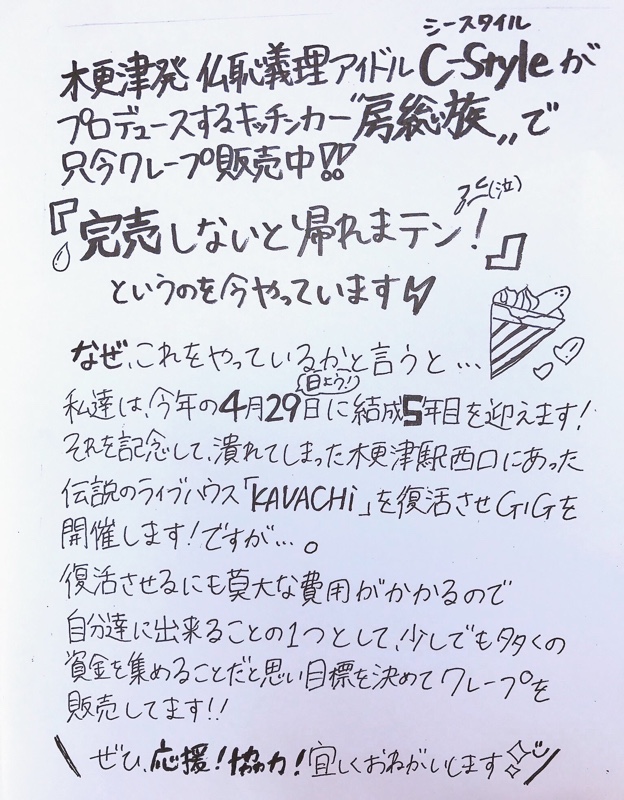 シースタイル
木更津発 仏恥義理アイドル C-Styleが
プロデュースするキッチンカー“房総族„で
只今クレープ販売中!!
『完売しないと帰れまテン!』
(泣)
というのを今やっています
なぜ、これをやっているかと言うと…
日よう!
私達は、今年の4月29日に結成5年目を迎えます!
それを記念して、潰れてしまった木更津駅西口にあった
伝説のライブハウス「KAVACHi」を復活させGIGを
開催します!ですが…。
復活させるにも莫大な費用がかかるので
自分達に出来ることの1つとして、少しでも多くの
資金を集めることだと思い目標を決めてクレープを
販売してます!!
\ ぜひ、応援!協力!宜しくおねがいします /